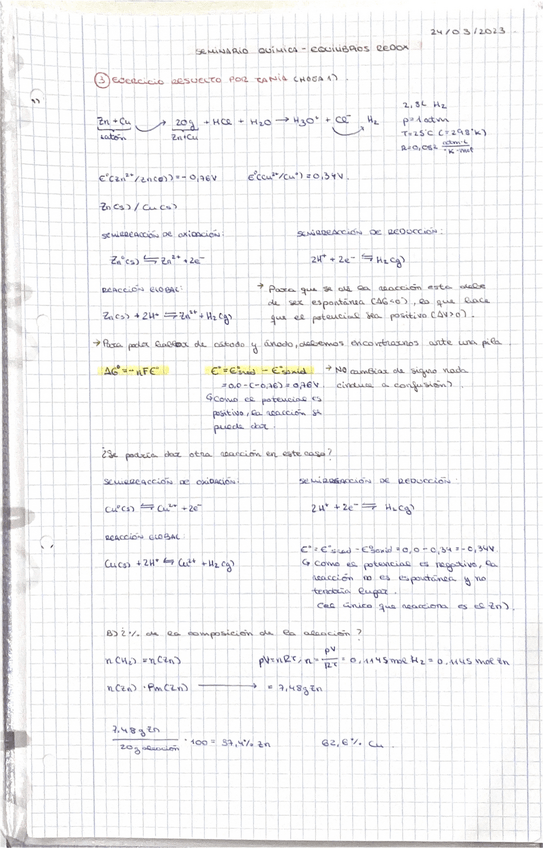 24/03/2023
SEMINARIO QUÍMICA - EQUILIBRIOS REDOX
③ EJERCICIO RESUELTO POR TANIA (HOJA 1).
Zn + Cu → 20g + HCl + H2O → H3O+ + Cl- H2
latón Zn+Cu
2,8L H2
p=1atm
T=25°C (T=298°K)
R=0,082 atm·L/°K·mol
E°(Zn2+/Zn(s))=-0,76V E°(Cu2+/Cu°)=0,34V.
Zn(s)/Cu(s)
SEMIRREACCIÓN DE OXIDACIÓN: SEMIRREACCIÓN DE REDUCCIÓN:
Zn°(s) ⇆ Zn2+ + 2e- 2H+ + 2e- ⇆ H2(g)
REACCIÓN GLOBAL:
Zn(s) + 2H+ ⇌ Zn2+ + H2(g)
→ Para que se dé la reacción esta debe
de ser espontánea (ΔG<0), lo que hace
que el potencial sea positivo (ΔV>0).
→ Para poder hablar de cátodo y ánodo, debemos encontrarnos ante una pila.
ΔG°=-nFE° E°=E°red - E°oxid → NO cambiar de signo nada
=0.0-(-0,76)=0,76V (induce a confusión).
↳ Como el potencial es
positivo, la reacción sí
puede dar.
¿Se podría dar otra reacción en este caso?
SEMIRREACCIÓN DE OXIDACIÓN: SEMIRREACCIÓN DE REDUCCIÓN:
Cu°(s) ⇆ Cu2+ + 2e- 2H+ + 2e- ⇌ H2(g)
REACCIÓN GLOBAL
Cu(s) + 2H+ ⇆ Cu2+ + H2(g)
E°=E°red - E°oxid=0,0-0,34=-0,34V
↳ Como el potencial es negativo, la
reacción no es espontánea y no
tendría lugar.
(el único que reacciona es el Zn).
B) ¿% de la composición de la aleación?
n(H2)=n(Zn) pV=nRT, n=pV/RT=0,1145 mol H2=0,1145 mol Zn
n(Zn)·Pm(Zn) → =7,48g Zn
7.48g Zn/20g aleación ·100=37,4% Zn 62,6% Cu.